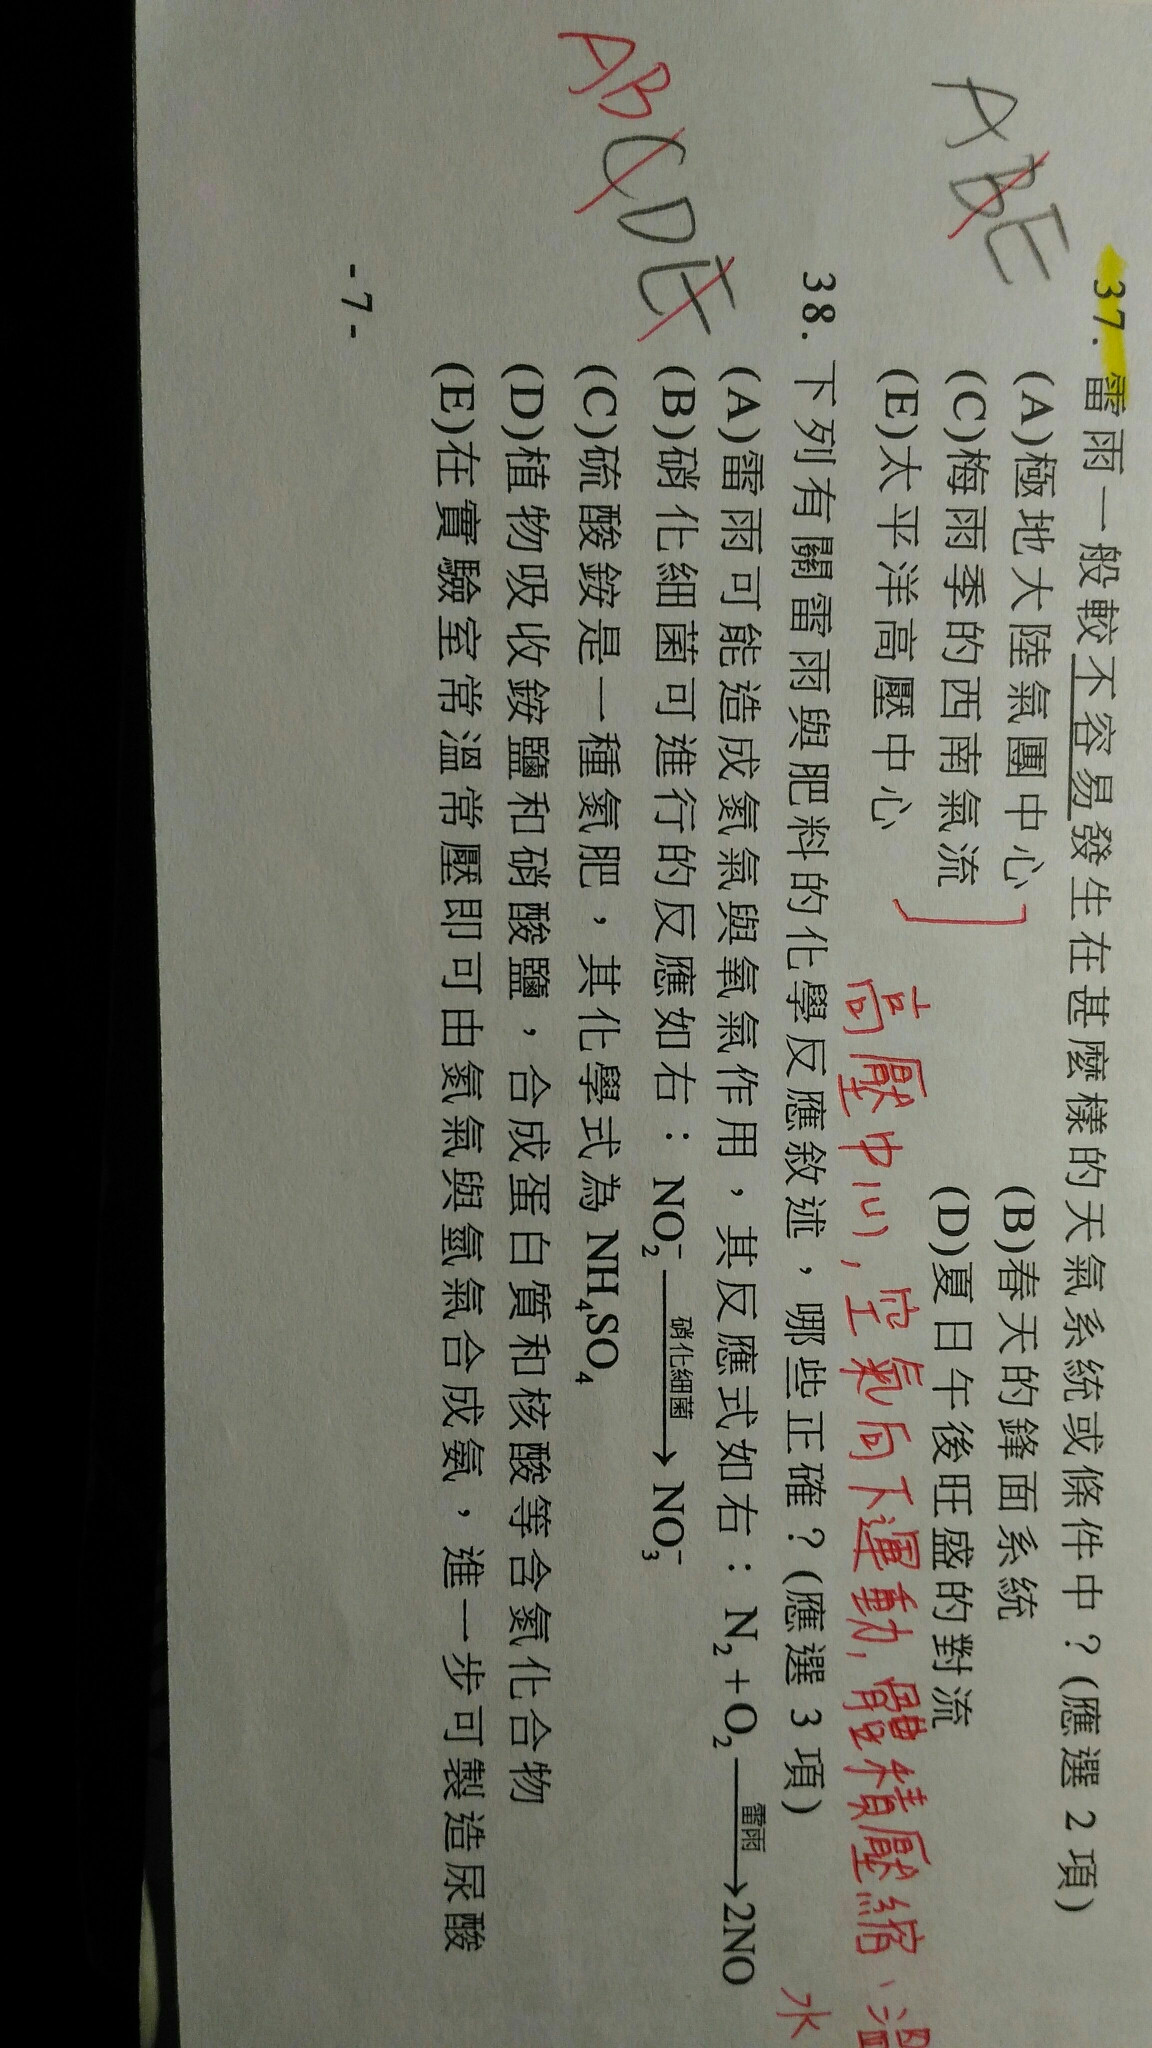 ABE
37. 雷雨一般較不容易發生在甚麼樣的天氣系統或條件中？(應選2項)
(A)極地大陸氣團中心 (B)春天的鋒面系統
(C)梅雨季的西南氣流 (D)夏日午後旺盛的對流
(E)太平洋高壓中心
高壓中心，空氣向下運動，體積壓縮、溫
水
ABCDE
38. 下列有關雷雨與肥料的化學反應敘述，哪些正確？(應選3項)
(A)雷雨可能造成氮氣與氧氣作用，其反應式如右：N₂+O₂ —雷雨→ 2NO
(B)硝化細菌可進行的反應如右：NO₂⁻ —硝化細菌→ NO₃⁻
(C)硫酸銨是一種氮肥，其化學式為NH₄SO₄
(D)植物吸收銨鹽和硝酸鹽，合成蛋白質和核酸等含氮化合物
(E)在實驗室常溫常壓即可由氮氣與氫氣合成氨，進一步可製造尿酸
- 7 -